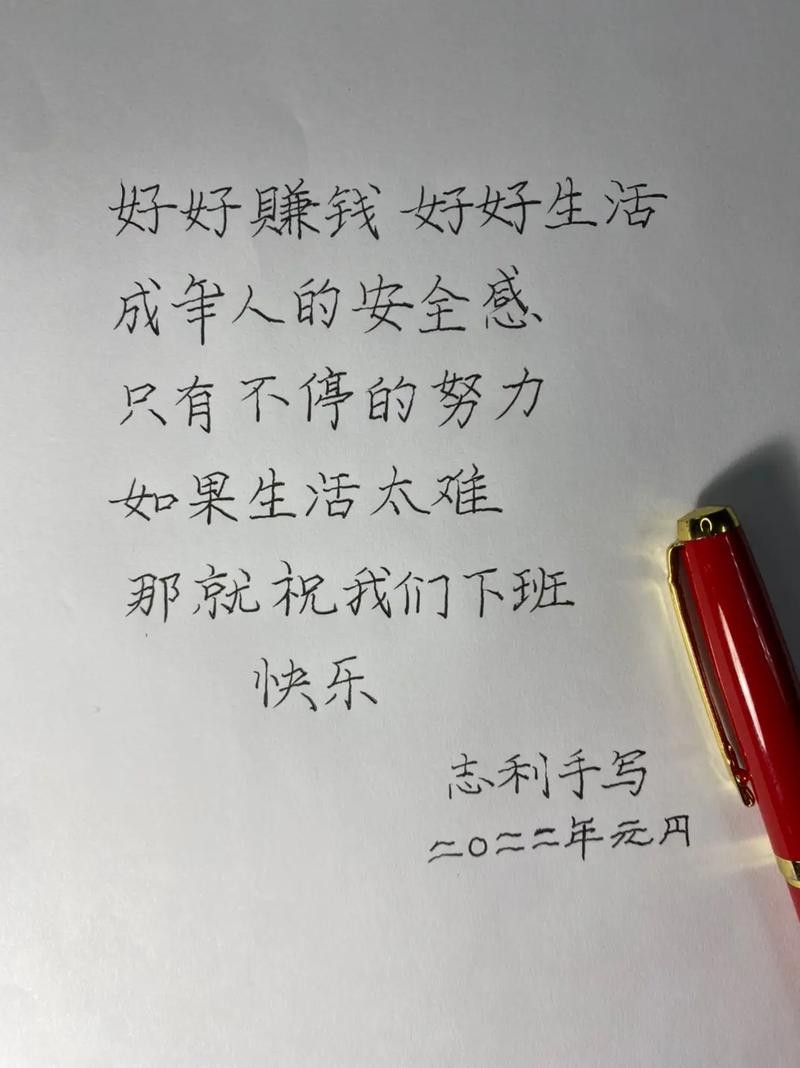 好好賺钱 好好生活
成年人的安全感
只有不停的努力
如果生活太难
那就祝我们下班
快乐
志利手写
二〇二二年元月